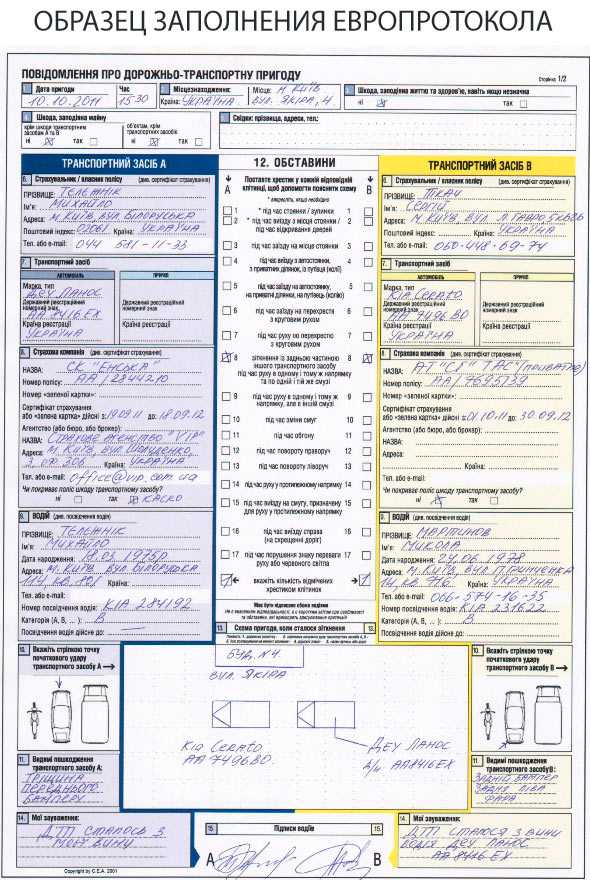 ОБРАЗЕЦ ЗАПОЛНЕНИЯ ЕВРОПРОТОКОЛА
ПОВІДОМЛЕННЯ ПРО ДОРОЖНЬО-ТРАНСПОРТНУ ПРИГОДУ
Сторінка 1/2
1. Дата пригоди Час
10.10.2011 15 30
2. Місцезнаходження: Місце: м. Київ
Країна: УКРАЇНА вул. Якіра, 4
3. Шкода, заподіяна життю та здоров'ю, навіть якщо незначна
ні так
4. Шкода, заподіяна майну
крім шкоди транспортним засобам А та В
об'єктам, крім транспортних засобів
ні так ні так
Свідки: прізвища, адреси, тел.:
ТРАНСПОРТНИЙ ЗАСІБ А
6. Страхувальник / власник полісу (див. сертифікат страхування)
ПРІЗВИЩЕ: Тележнік
Ім'я: Михайло
Адреса: м. Київ вул. Білоруська
Поштовий індекс: 02061 Країна: Україна
Тел. або e-mail: 044 581-11-33
7. Транспортний засіб
АВТОМОБІЛЬ ПРИЧІП
Марка, тип
Деу Ланос
Державний реєстраційний номерний знак
АА 8416 ЕХ
Країна реєстрації
УКРАЇНА
Державний реєстраційний номерний знак
Країна реєстрації
8. Страхова компанія (див. сертифікат страхування)
НАЗВА: СК "ЕНСЬКА"
Номер полісу: АА/2844210
Номер «зеленої картки»:
Сертифікат страхування
або «зелена картка» дійсні з: 19.09.11 до: 18.09.12
Агентство (або бюро, або брокер):
НАЗВА: Страхове агенство "VIP"
Адреса: м. Київ, вул.
Країна: УКРАЇНА
Тел. або e-mail: office@vip.com.ua
Чи покриває поліс шкоду транспортному засобу?
ні так КАСКО
9. ВОДІЙ (див. посвідчення водія)
ПРІЗВИЩЕ: Тележнік
Ім'я: Михайло
Дата народження: 18.03.1975р.
Адреса: м. Київ, вул. Білоруська
Країна:
Тел. або e-mail:
Номер посвідчення водія: КІА 284192
Категорія (А, В, ...): В
Посвідчення водія дійсне до:
10. Вкажіть стрілкою точку початкового удару транспортного засобу А
11. Видимі пошкодження транспортного засобу А:
Тріщина
переднього
бамперу
14. Мої зауваження:
ДТП сталось з
моєї вини
12. ОБСТАВИНИ
А В
Поставте хрестик у кожній відповідній клітинці, щоб допомогти пояснити схему
* викресліть, якщо необхідно
1 * під час стоянки / зупинки 1
2 * під час виїзду з місця стоянки / під час відкривання дверей 2
3 під час заїзду на місце стоянки 3
4 під час виїзду з автостоянки, з приватних ділянок, із путівця (колії) 4
5 під час заїзду на автостоянку, на приватні ділянки, на путівець (колію) 5
6 під час заїзду на перехрестя з круговим рухом 6
7 під час руху по перехрестю з круговим рухом 7
8 зіткнення із задньою частиною іншого транспортного засобу під час руху в одному і тому ж напрямку та по одній і тій же смузі 8
9 під час руху в одному і тому ж напрямку, але в іншій смузі 9
10 під час зміни смуг 10
11 під час обгону 11
12 під час повороту праворуч 12
13 під час повороту ліворуч 13
14 під час руху у протилежному напрямку 14
15 під час виїзду на смугу, призначену для руху у протилежному напрямку 15
16 під час виїзду справа (на скрещенні доріг) 16
17 під час порушення знаку переваги руху або червоного світла 17
1 вкажіть кількість відмічених хрестиком клітинок 1
Має бути підписано обома водіями
13. Схема пригоди, коли сталося зіткнення 13.
Буд. N4
вул. Якіра
Kia Cerato
АА 7496 ВО
Деу Ланос
д/н АА8416ЕХ
15. Підписи водіїв 15.
А В
ТРАНСПОРТНИЙ ЗАСІБ В
6. Страхувальник / власник полісу (див. сертифікат страхування)
ПРІЗВИЩЕ: Ткач
Ім'я: Сергій
Адреса: м. Київ, вул.
Поштовий індекс: Країна: УКРАЇНА
Тел. або e-mail: 050-448-69-74
7. Транспортний засіб
АВТОМОБІЛЬ ПРИЧІП
Марка, тип
Kia Cerato
Державний реєстраційний номерний знак
АА 7496 ВО
Країна реєстрації
УКРАЇНА
Державний реєстраційний номерний знак
Країна реєстрації
8. Страхова компанія (див. сертифікат страхування)
НАЗВА: АТ "СГ "ТАС" (приватне)
Номер полісу: АА/7695139
Номер «зеленої картки»:
Сертифікат страхування
або «зелена картка» дійсні з: 01.10.11 до: 30.09.12
Агентство (або бюро, або брокер):
НАЗВА:
Адреса:
Країна:
Тел. або e-mail:
Чи покриває поліс шкоду транспортному засобу?
ні так
9. ВОДІЙ (див. посвідчення водія)
ПРІЗВИЩЕ: Мартинов
Ім'я: Микола
Дата народження: 24.06.1978
Адреса: м. Київ, вул.
Країна: УКРАЇНА
Тел. або e-mail: 066-574-16-35
Номер посвідчення водія: КІА 231622
Категорія (А, В, ...): В
Посвідчення водія дійсне до:
10. Вкажіть стрілкою точку початкового удару транспортного засобу В
11. Видимі пошкодження транспортного засобу В:
Задній бампер
задня ліва
фара
14. Мої зауваження:
ДТП сталося з вини
водія Деу Ланос
АА 8416 ЕХ
Copyright by C.E.A. 2001